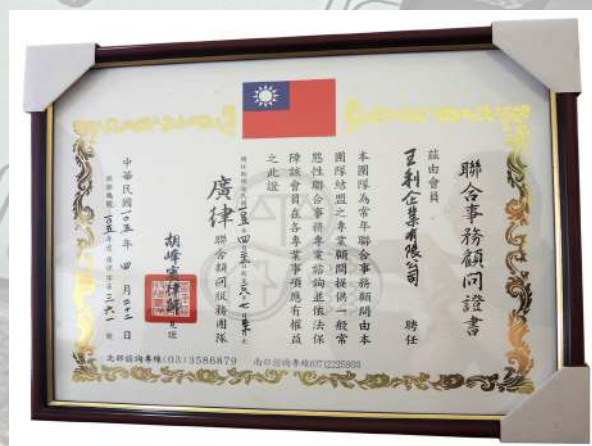 聯合事務顧問證書
茲由會員
王利企業有限公司 聘任
本團隊為常年聯合事務顧問由本
團隊結盟之專業顧問提供一般常
態性聯合事務專業諮詢並依法保
障該會員在各專業事項應有權益
之此證
廣律 聯合顧問服務團隊
中華民國一〇五年 四 月二十二日
北部諮詢專線(03)3586879 南部諮詢專線(07)2225898